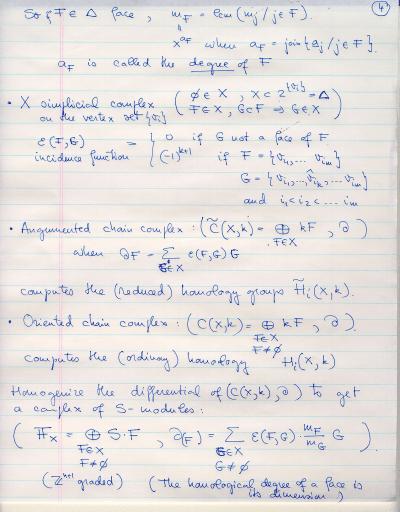 4
So if F ∈ Δ face, m_F = lcm(m_j / j ∈ F).
"
x^{a_F} when a_F = join{a_j / j ∈ F}.
a_F is called the degree of F
• X simplicial complex ( ∅ ∈ X, X ⊂ 2^{{v_i}} = Δ
on the vertex set {v_i} F ∈ X, G ⊂ F ⇒ G ∈ X )
ε(F,G) = { 0 if G not a face of F
incidence function (-1)^{k+1} if F = {v_{i_1}, ... v_{i_m}}
G = {v_{i_1}, .., v̂_{i_k}, ... v_{i_m}}
and i_1 < i_2 < ... i_m
• Augmented chain complex : (C̃(X,k) = ⊕_{F∈X} kF, ∂)
when ∂F = Σ_{G∈X} ε(F,G) G
computes the (reduced) homology groups H̃_i(X,k).
• Oriented chain complex : (C(X,k) = ⊕_{F∈X F≠∅} kF, ∂).
computes the (ordinary) homology H_i(X,k)
Homogenize the differential of (C(X,k), ∂) to get
a complex of S-modules :
( 𝔽_X = ⊕_{F∈X F≠∅} S·F, ∂(F) = Σ_{G∈X G≠∅} ε(F,G) · m_F/m_G G ).
(ℤ^{n+1} graded) (The homological degree of a face is
its dimension)